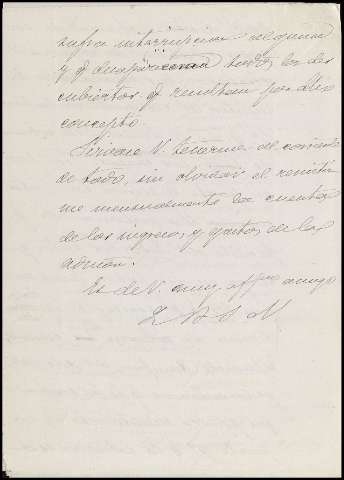 sufra interrupcion alguna
y q desaparezcan todos los des
cubiertos q resultan por dho
concepto.
Sirvase V. tenerme al corriente
de todo, sin olvidar el remitir
me mensualmente las cuentas
de los ingresos, y gastos de la
aduana.
Es de V. muy affmo amigo
Q B S M